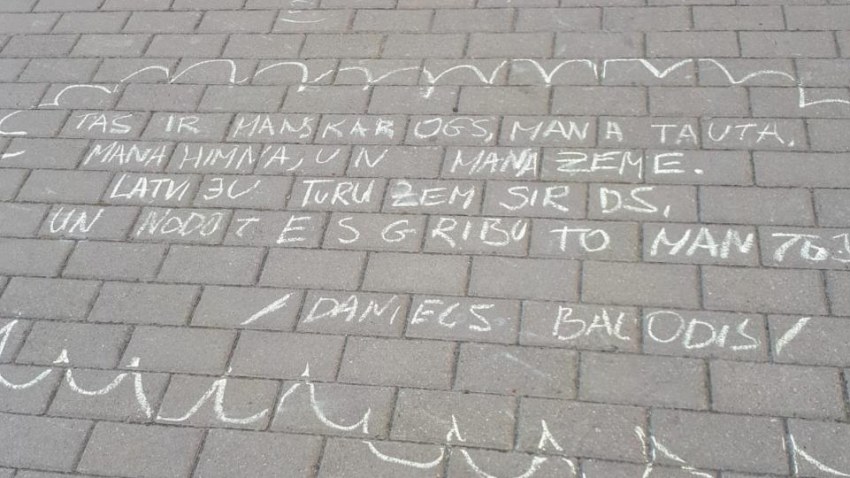 TAS IR MANS KAROGS, MANA TAUTA.
MANA HIMNA, UN MANA ZEME.
LATVIJU TURU ZEM SIRDS,
UN NODOT ES GRIBU TO MAN
/DANIELS BALODIS/